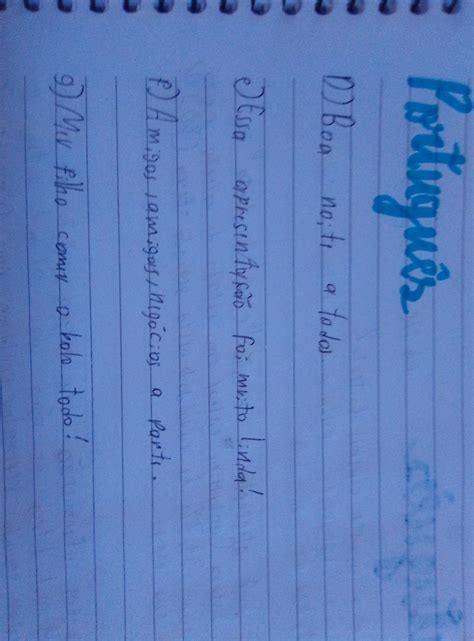 Português
D) Boa noiti a todos
e) Essa apresentação foi muito linda!
f) Amigos, amigos, nigócios a parti.
g) Miu filho comiu o bolo todo!